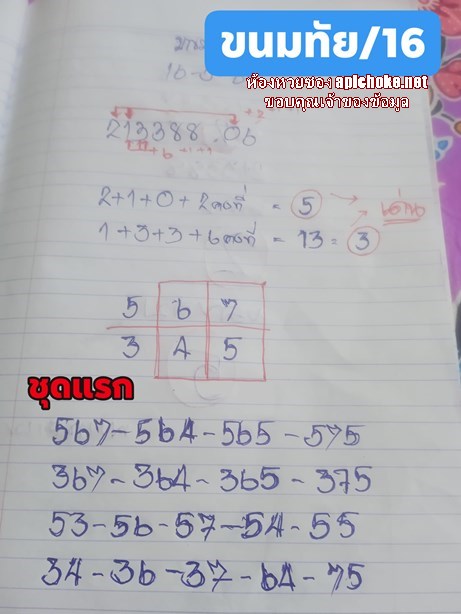 ขนมทัย/16
ห้องหวยซอง apichoke.net
ขอบคุณเจ้าของข้อมูล
16-
+2
213388.06
+6 +1+1
2+1+0+2คงที่ = 5
เด่น
1+3+3+6คงที่ = 13 = 3
5 6 7
3 4 5
ชุดแรก
567-564-565-575
367-364-365-375
53-56-57-54-55
34-36-37-64-75